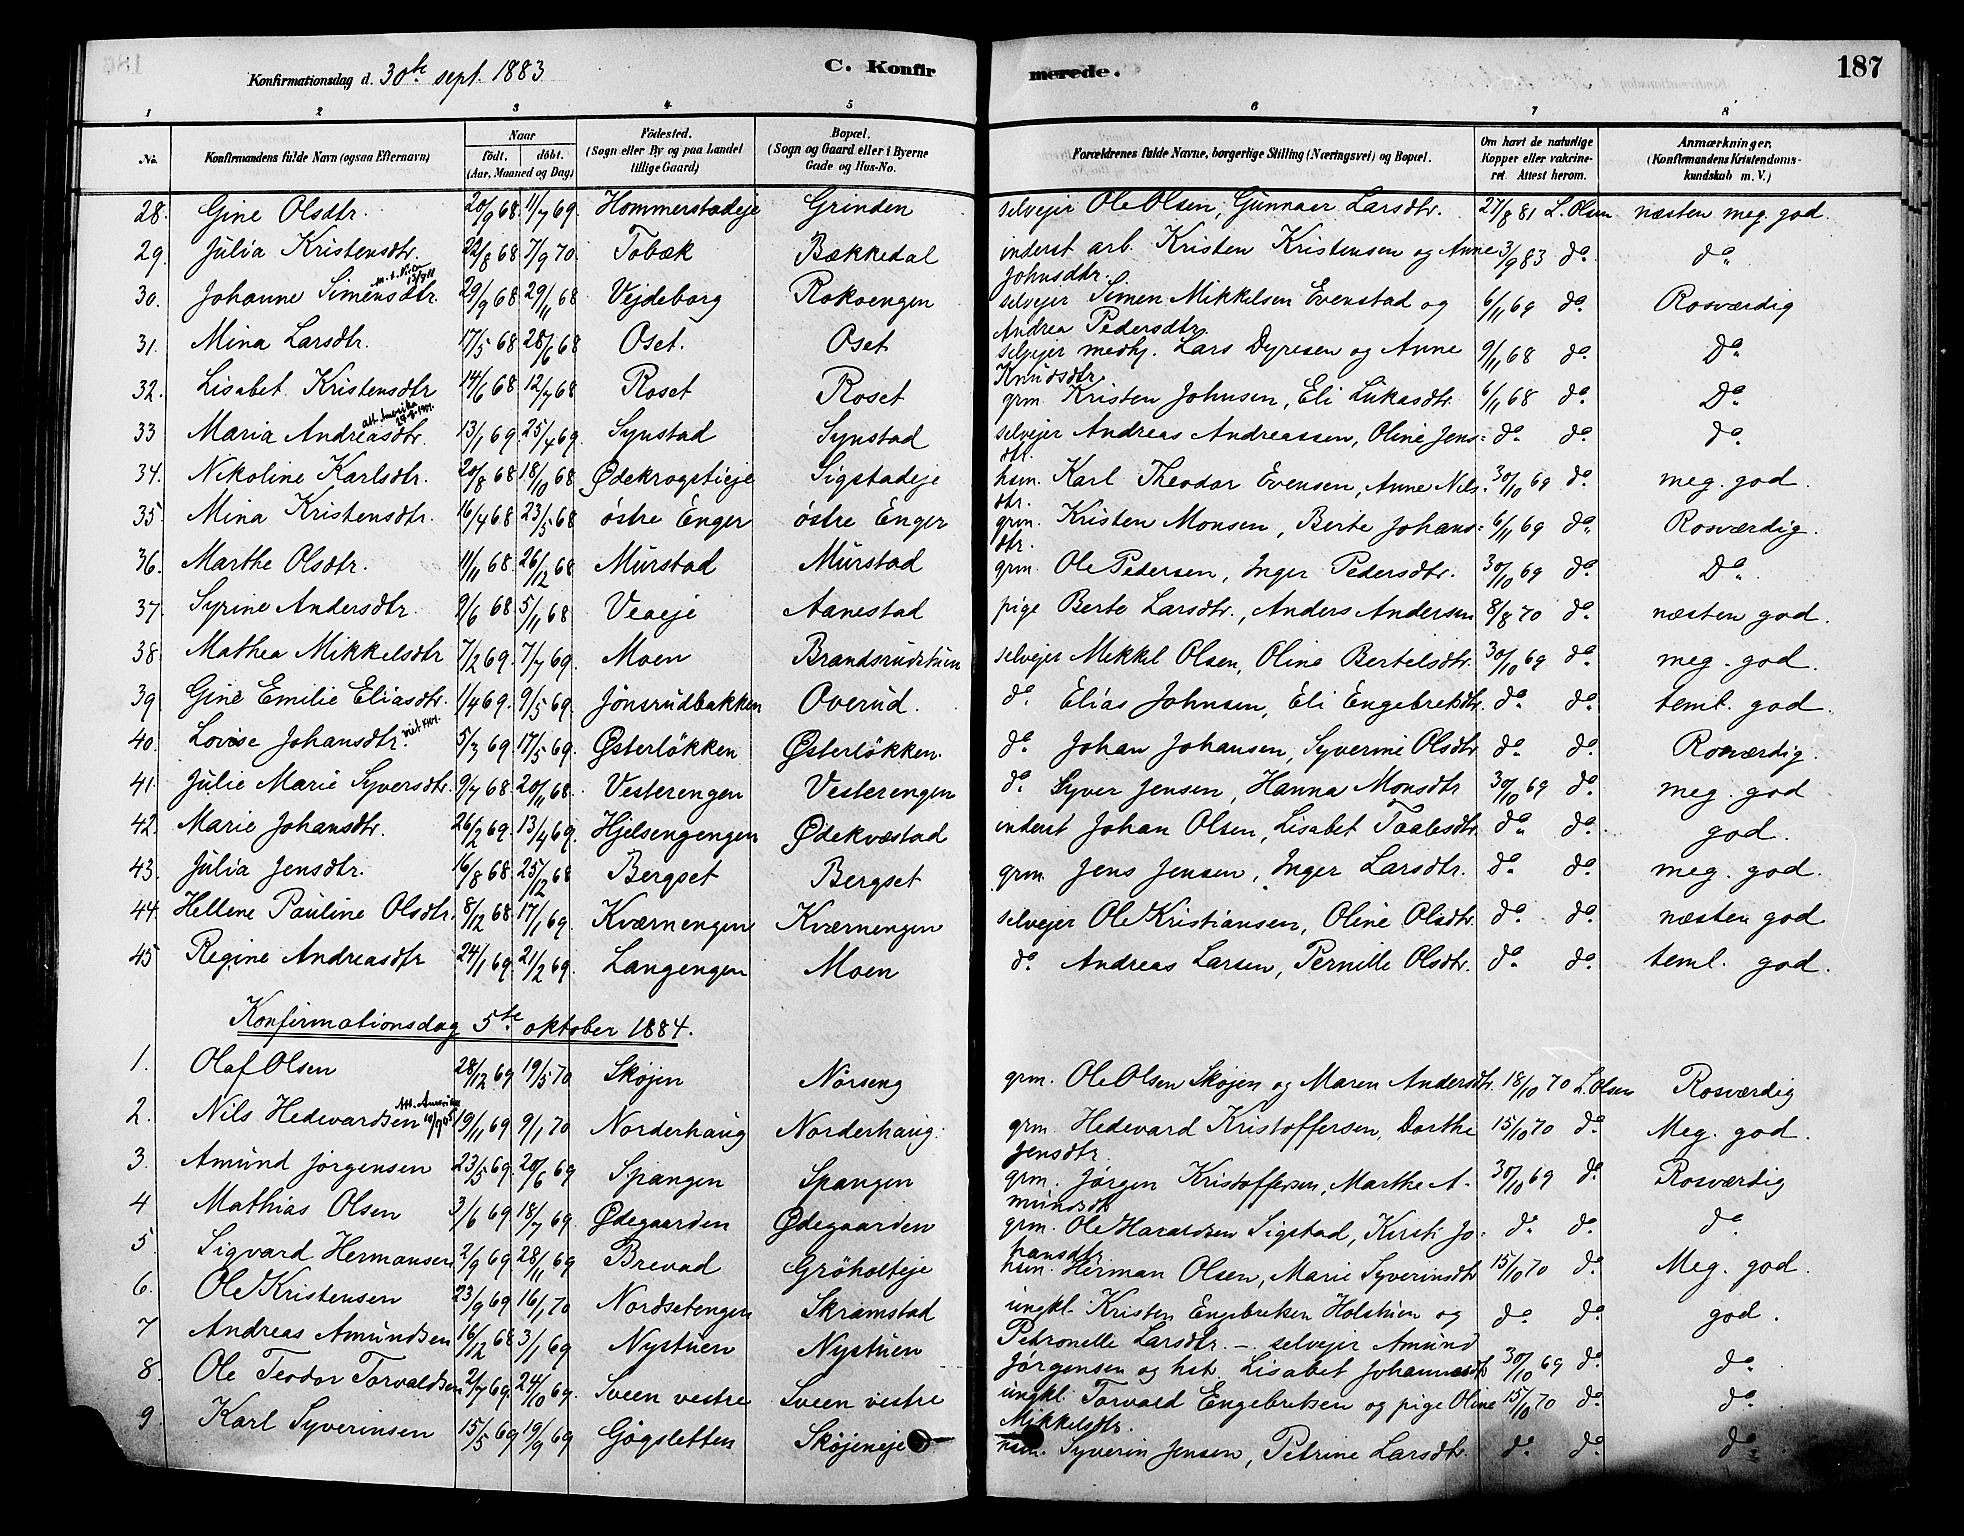 Konfirmationsdag d. 30te sept. 1883
C. Konfir
merede.
187
1 2 3 4 5 6 7 8
No. Konfirmandens fulde Navn (ogsaa Efternavn) Naar födt. döbt. (Aar, Maaned og Dag) Födested. (Sogn eller By og paa Landet tillige Gaard) Bopæl. (Sogn og Gaard eller i Byerne Gade og Hus-No. Forældrenes fulde Navne, borgerlige Stilling (Næringsvei) og Bopæl. Om havt de naturlige Kopper eller vakcineret. Attest herom. Anmærkninger. (Konfirmandens Kristendomskundskab m. V.)
28. Gine Olsdtr. 20/9 68. 11/7 69. Hommerstadeje Grinden selvejer Ole Olsen, Gunnaer Larsdtr. 27/8 81 L. Olsen næsten meg. god.
29. Julia Kristensdtr. 22/8 68 7/9 70. Tobæk Bækkedal inderst arb. Kristen Kristensen og Anne Johnsdtr. 3/9 83 do. do.
30. Johanne Simensdtr. 29/9 68 29/11 68 Vejdeborg Rokoengen selvejer Simen Mikkelsen Evenstad og Andrea Pedersdtr. 6/11 69 do. Rosværdig
31. Mina Larsdtr. 17/5 68 28/6 68 Oset. Oset selvejer medhj. Lars Dyresen og Anne Knudsdtr. 9/11 68 do. Do.
32. Lisabet Kristensdtr 14/6 68 12/7 68 Roset Roset grm. Kristen Johnsen, Eli Lukasdtr. 6/11 68 do. Do.
att. Amerika
33 Maria Andreasdtr. 13/1 69. 25/4 69. Synstad Synstad selvejer Andreas Andreassen, Oline Jensdtr. do. do. do.
34. Nikoline Karlsdtr. 20/8 68 18/10 68 Ødekrogstieje Sigstadeje hsm. Karl Theodor Evensen, Anne Nilsdtr. 30/10 69 do. meg. god.
35. Mina Kristensdtr. 16/4 68 23/5 68 östre Enger östre Enger grm. Kristen Monsen, Berte Johansdtr. 6/11 69 do. Rosværdig.
36. Marthe Olsdtr. 11/11 68. 26/12 68 Murstad Murstad grm. Ole Pedersen, Inger Pedersdtr. 30/10 69 do. Do.
37. Syrine Andersdtr 9/6 68 5/11 68 Veaeje Aanestad pige Berte Larsdtr., Anders Andersen 8/8 70 do. næsten god.
38. Mathea Mikkelsdtr 7/2 69. 7/7 69. Moen Brandsrudstuen selvejer Mikkel Olsen, Oline Bertelsdtr. 30/10 69 do. meg. god.
39 Gine Emilie Eliasdtr. 1/4 69. 9/5 69. Jónsrudbakken Overud. do. Elias Johnsen, Eli Engebretsdtr. do. do. teml. god.
40. Lovise Johansdtr. 5/3 69 17/5 69. Østerlökken Østerlökken. do. Johan Johansen, Syverine Olsdtr do. do. Rosværdig.
41. Julie Marie Syversdtr. 9/7 68. 20/11 68. Vesterengen Vesterengen do. Syver Jensen, Hanna Monsdtr 30/10 69 do. meg. god
42. Marie Johansdtr. 26/2 69. 13/4 69. Hjelsengengen Ødekvæstad inderst Johan Olsen, Lisabet Taalesdtr. do. do. god.
43. Julia Jensdtr. 16/8 68. 25/12 68 Bergset Bergset grm. Jens Jensen, Inger Larsdtr. do. do. meg. god.
44. Hellene Pauline Olsdtr. 8/12 68. 17/1 69. Kværnengen Kværnengen selvejer Ole Kristiansen, Oline Olsdtr. do. do. næsten god
45 Regine Andreasdtr 24/1 69. 21/2 69. Langengen Moen do. Andreas Larsen, Pernille Olsdtr. do. do. teml. god.
Konfirmationsdag 5te oktober 1884.
1. Olaf Olsen 28/12 69 19/5 70 Skøjen Norseng grm. Ole Olsen Skøjen og Maren Andersdtr. 18/10 70 L. Olsen Rosværdig
Att. Amerika
2. Nils Hedevardsen 19/11 69 9/1 70 Norderhaug Norderhaug. grm. Hedevard Kristoffersen, Dorthe Jensdtr. 15/10 70 do. Meg. god.
3. Amund Jörgensen 23/5 69. 20/6 69 Spangen Spangen grm. Jörgen Kristoffersen, Marthe Amundsdt. 30/10 69 do. Rosværdig
4 Mathias Olsen 3/6 69 18/7 69. Ødegaarden Ødegaarden grm. Ole Haraldsen Sigstad, Kirsti Johansdtr. do. do. do.
5. Sigvard Hermansen 2/9 69 28/11 69 Brevad Gröholteje hsm. Herman Olsen, Marie Syverinsdtr 15/10 70 do. Meg. god.
6. Ole Kristensen 23/9 69 16/1 70 Nordsetengen Skramstad ungkl. Kristen Engebretsen Holstuen og Petronelle Larsdtr. do. do. god.
7 Andreas Amundsen 16/12 68 3/1 69 Nystuen Nystuen — selvejer Amund Jørgensen og hst. Lisabet Johannesdt. 30/10 69 do. do.
8. Ole Teodor Torvaldsen 2/7 69. 24/10 69. Sveen vestre Sveen vestre ungkl. Torvald Engebretsen og pige Oline Mikkelsdtr. 15/10 70 do. do.
9. Karl Syverinsen 15/5 69 19/9 69 Gøgsletten Skøjeneje hsm. Syverin Jensen, Petrine Larsdtr. do. do. do.